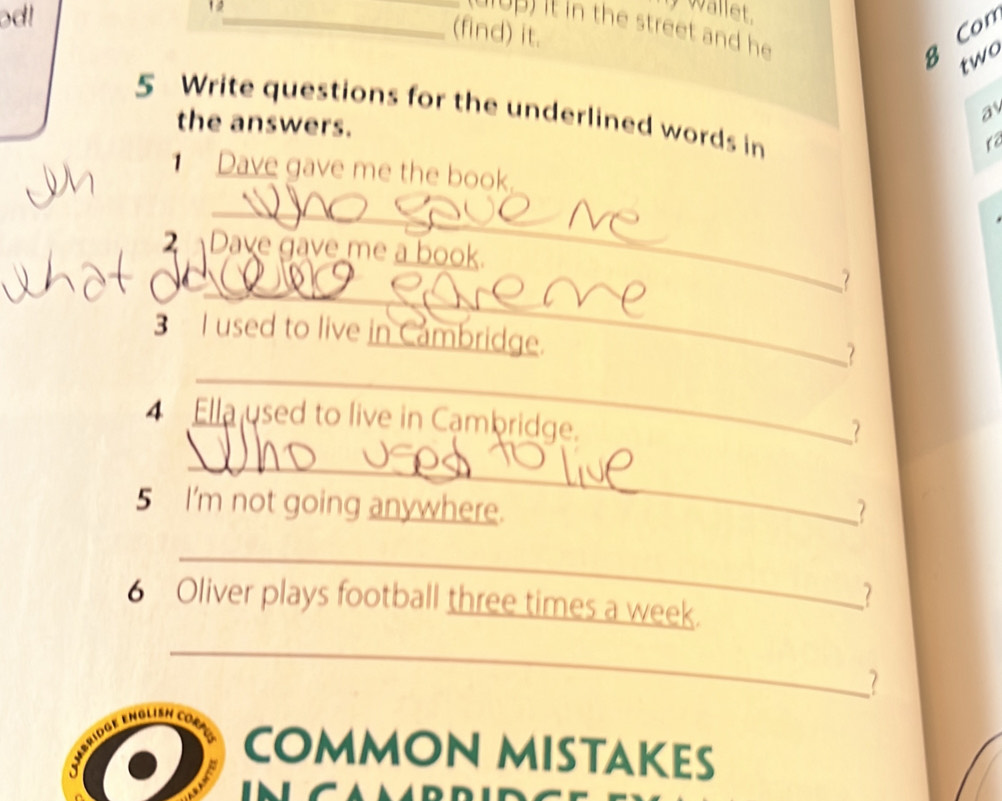 od!
12 (drop) it in the street and he
(find) it.
wallet.
8 Com
two
5 Write questions for the underlined words in
the answers.
1 Dave gave me the book.
wh
Who gave me
?
2 Dave gave me a book.
what did
gave me
?
3 I used to live in Cambridge.
?
4 Ella used to live in Cambridge.
Who used to live
?
5 I'm not going anywhere.
?
6 Oliver plays football three times a week.
?
CAMBRIDGE ENGLISH CORPUS
COMMON MISTAKES